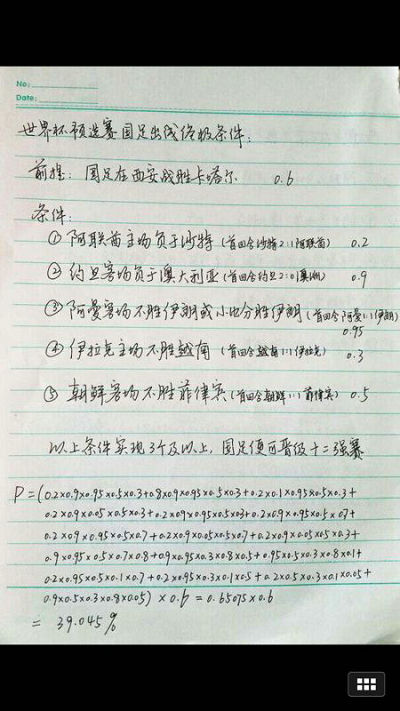 No:
Date:
世界杯预选赛国足出线终极条件:
前提: 国足在西安战胜卡塔尔 0.6
条件:
① 阿联酋主场负于沙特 (首回合沙特2:1阿联酋) 0.2
② 约旦客场负于澳大利亚 (首回合约旦2:0澳洲) 0.9
③ 阿曼客场不胜伊朗或小比分胜伊朗 (首回合阿曼1:1伊朗)
0.95
④ 伊拉克主场不胜越南 (首回合越南1:1伊拉克) 0.3
⑤ 朝鲜客场不胜菲律宾 (首回合朝鲜1:1菲律宾) 0.5
以上条件实现3个及以上, 国足便可晋级十二强赛
P=(0.2×0.9×0.95×0.5×0.3+0.8×0.9×0.95×0.5×0.3+0.2×0.1×0.95×0.5×0.3+
0.2×0.9×0.05×0.5×0.3+0.2×0.9×0.95×0.5×0.3+0.2×0.9×0.95×0.5×0.7+
0.2×0.9×0.95×0.5×0.7+0.2×0.9×0.05×0.5×0.7+0.2×0.9×0.05×0.5×0.3+
0.9×0.95×0.5×0.7×0.8+0.9×0.95×0.3×0.8×0.5+0.95×0.5×0.3×0.8×0.1+
0.2×0.95×0.5×0.1×0.7+0.2×0.95×0.3×0.1×0.5+0.2×0.5×0.3×0.1×0.05+
0.9×0.5×0.3×0.8×0.05)×0.6=0.65075×0.6
= 39.045%